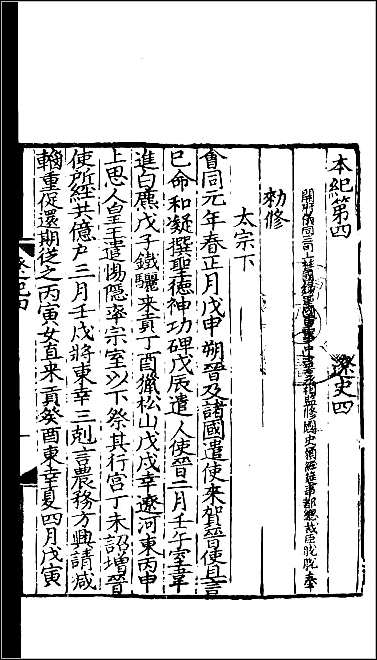 本紀第四　遼史四
開府儀同三司上柱國錄軍國重事中書右丞相監修國史領經筵事都總裁臣脫脫奉
勑修
太宗下
會同元年春正月戊申朔晉及諸國遣使來賀晉使且言
已命和凝撰聖德神功碑戊辰遣人使晉二月壬午室韋
進白麃戊子鐵驪來貢丁酉獵松山戊戌幸遼河東丙申
上思人皇王遣惕隱率宗室以下祭其行宮丁未詔增晉
使所經共億戶三月壬戌將東幸三剋言農務方興請減
輜重促還期從之丙寅女直來貢癸酉東幸夏四月戊寅